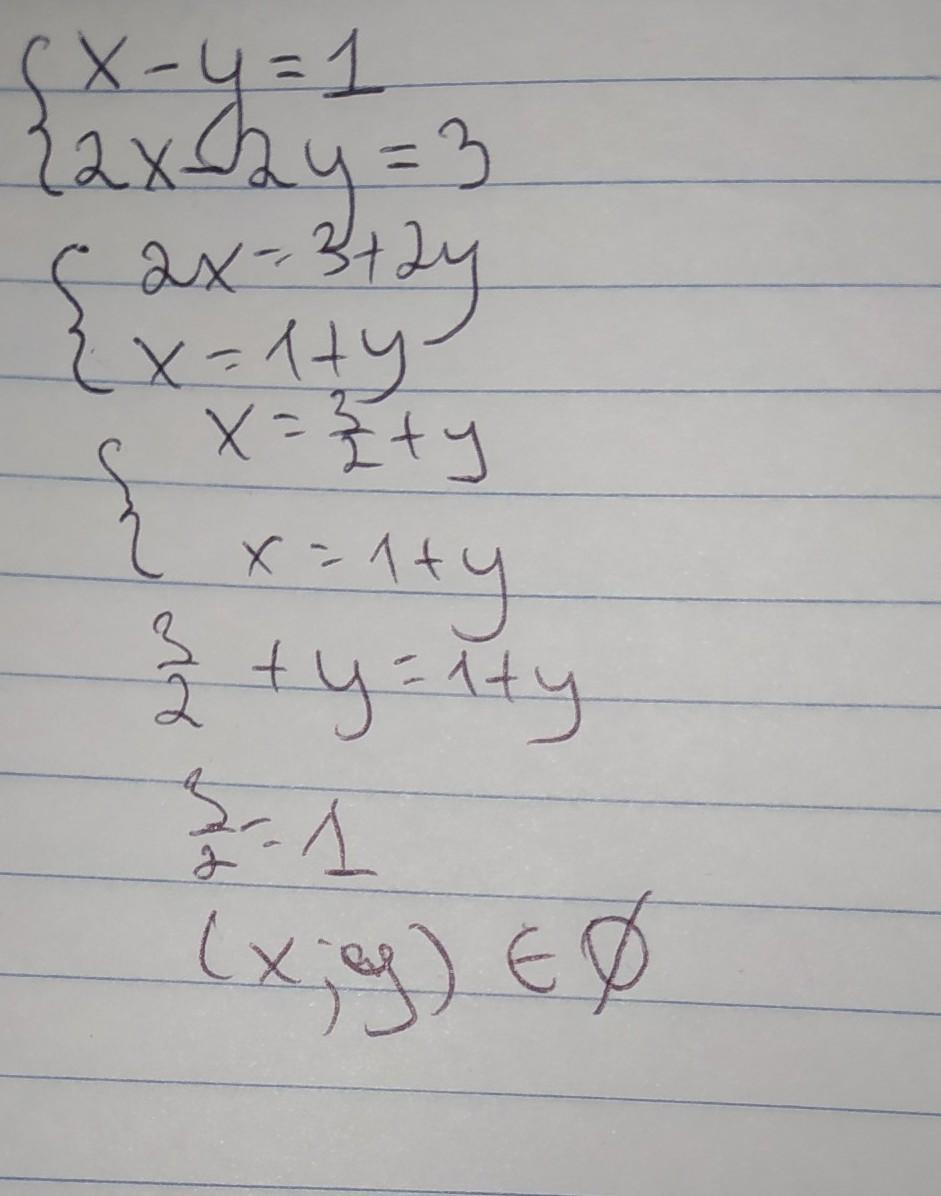 {x - y = 1
{2x - 2y = 3
{2x = 3 + 2y
{x = 1 + y
{x = 3/2 + y
{x = 1 + y
3/2 + y = 1 + y
3/2 = 1
(x; y) ∈ ∅